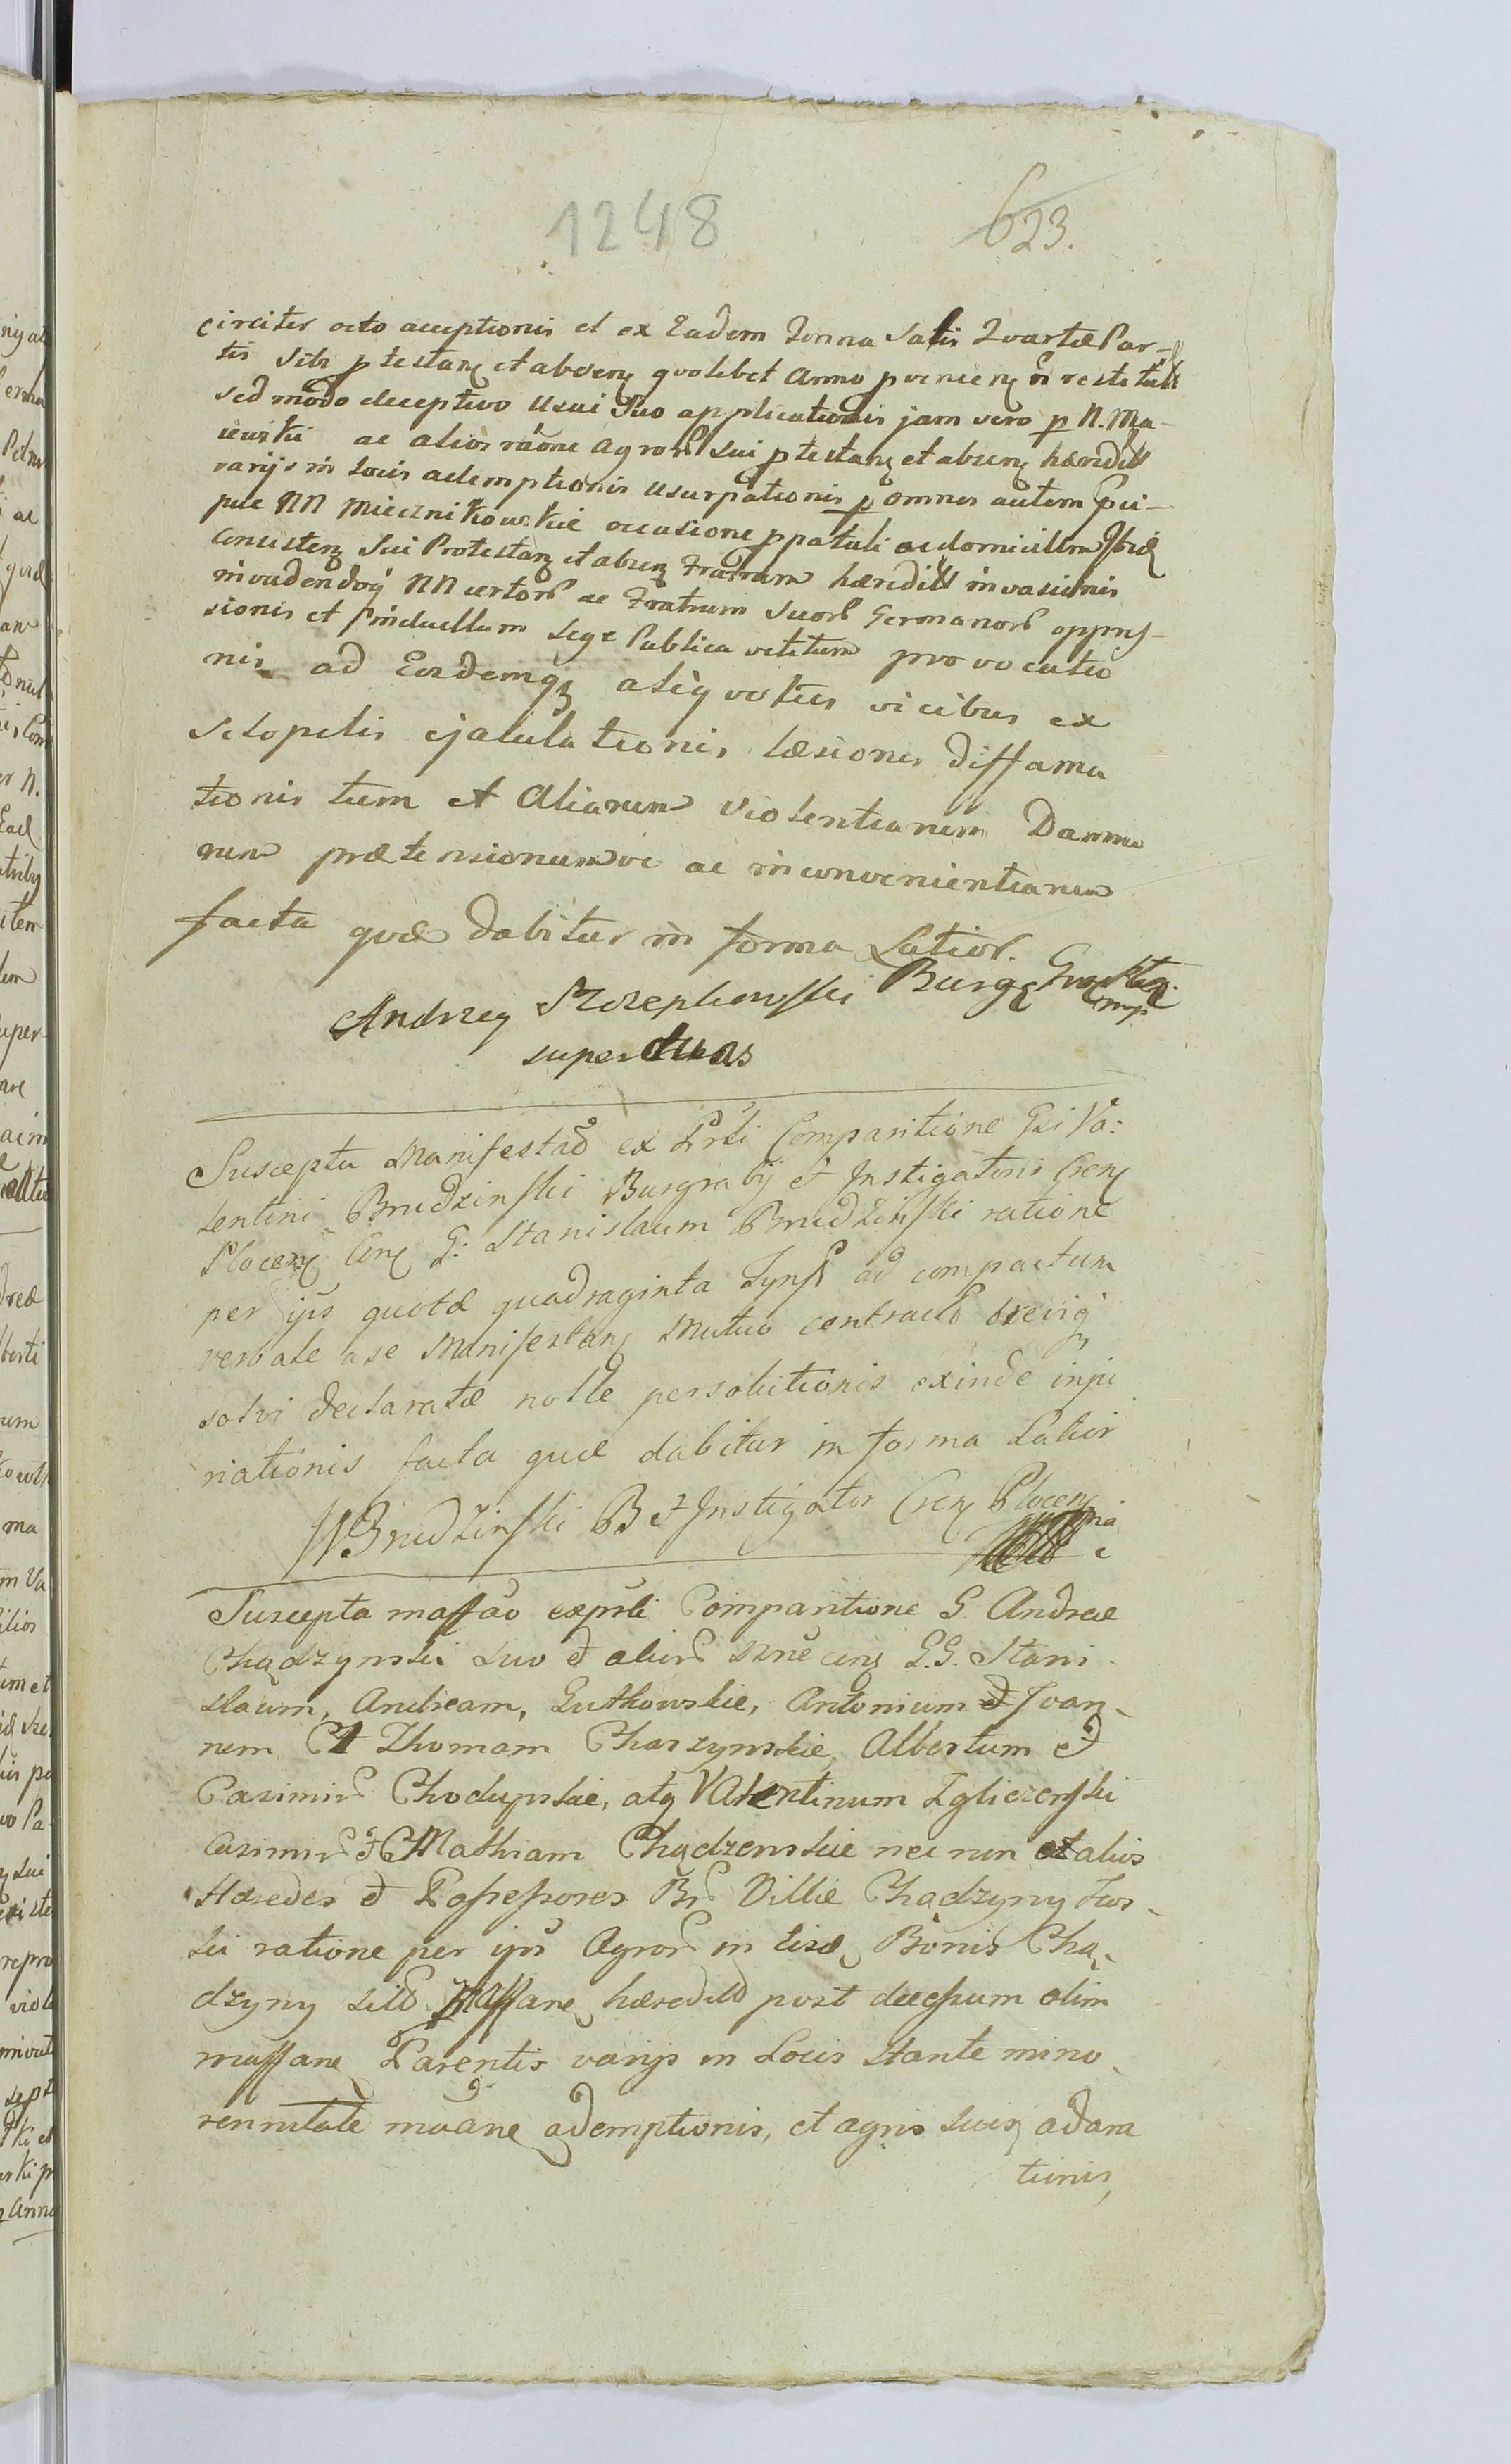 1248
623.
circiter octo acceptionis et ex Eadem Tonna Salis Quartæ Par-
tis Sibi ptestanꝫ et absenꝫ quolibet Anno pvenienꝫ
sed modo deceptivo Usui Suo applicationis jam vero p N. Ma-
ac alios raõne Agror Sui ptestanꝫ et absenꝫ hæredit
varijs in locis ademptionis usurpationis p omnes autem
NN Miecznikowskie occasione ppatuli ac domicilium
Consistenꝫ Sui Protestanꝫ et absenꝫ Fratrum hæredit invasionis
invadendoq NN certor ac Fratrum Suor Germanor oppres-
sionis et Lege Publica vetitum provocatio
nis ad Eosdemqꝫ aliquoties vicibus ex
Sclopetis ejaculationis læsionis diffama
tionis tum et Aliarum Violentiarum Damno
rum prætensionumve ac inconvenientiarum
facta quæ dabitur in forma Latior.
Andrzey Burgꝫ
super duas
Suscepta Manifestaõ ex Prsti Comparitione Gsi Va:
lentini Brudzinski Burgrabij et Instigatoris Crenꝫ
Plocenꝫ Conꝫ G: Stanislaum Brudzinski ratione
per ips quotæ quadraginta Tynf ad compactum
verbale a se Manifestanꝫ Mutuo contracto
solvi declaratæ nolle persolutionis exinde inju
riationis facta quæ dabitur in forma Latior
WBrudzinski B et Instigator Crenꝫ Plocenꝫ
Suscepta maffaõ exprsti Comparitione G. Andreæ
Chądzynski Suo et alior nne conꝫ G.G. Stani-
slaum, Andream, Lutkowskie, Antonium et Joan-
nem Et Thomam Charzynskie, Albertum et
Casimir Chodupskie, atq Valentinum Zgliczenski
Casimir et Mathiam Chądzenskie nec non et alios
Hæredes et Possessores Br Villæ Chądzyny
ratione per ips Agror in Eisdꝫ Bonis Chą-
dzyny Sibi Maffanꝫ hæredit post decessum olim
maffanꝫ Parentis varijs in Locis stante mino
rennitate ademptionis, et agris suis adara
tionis,